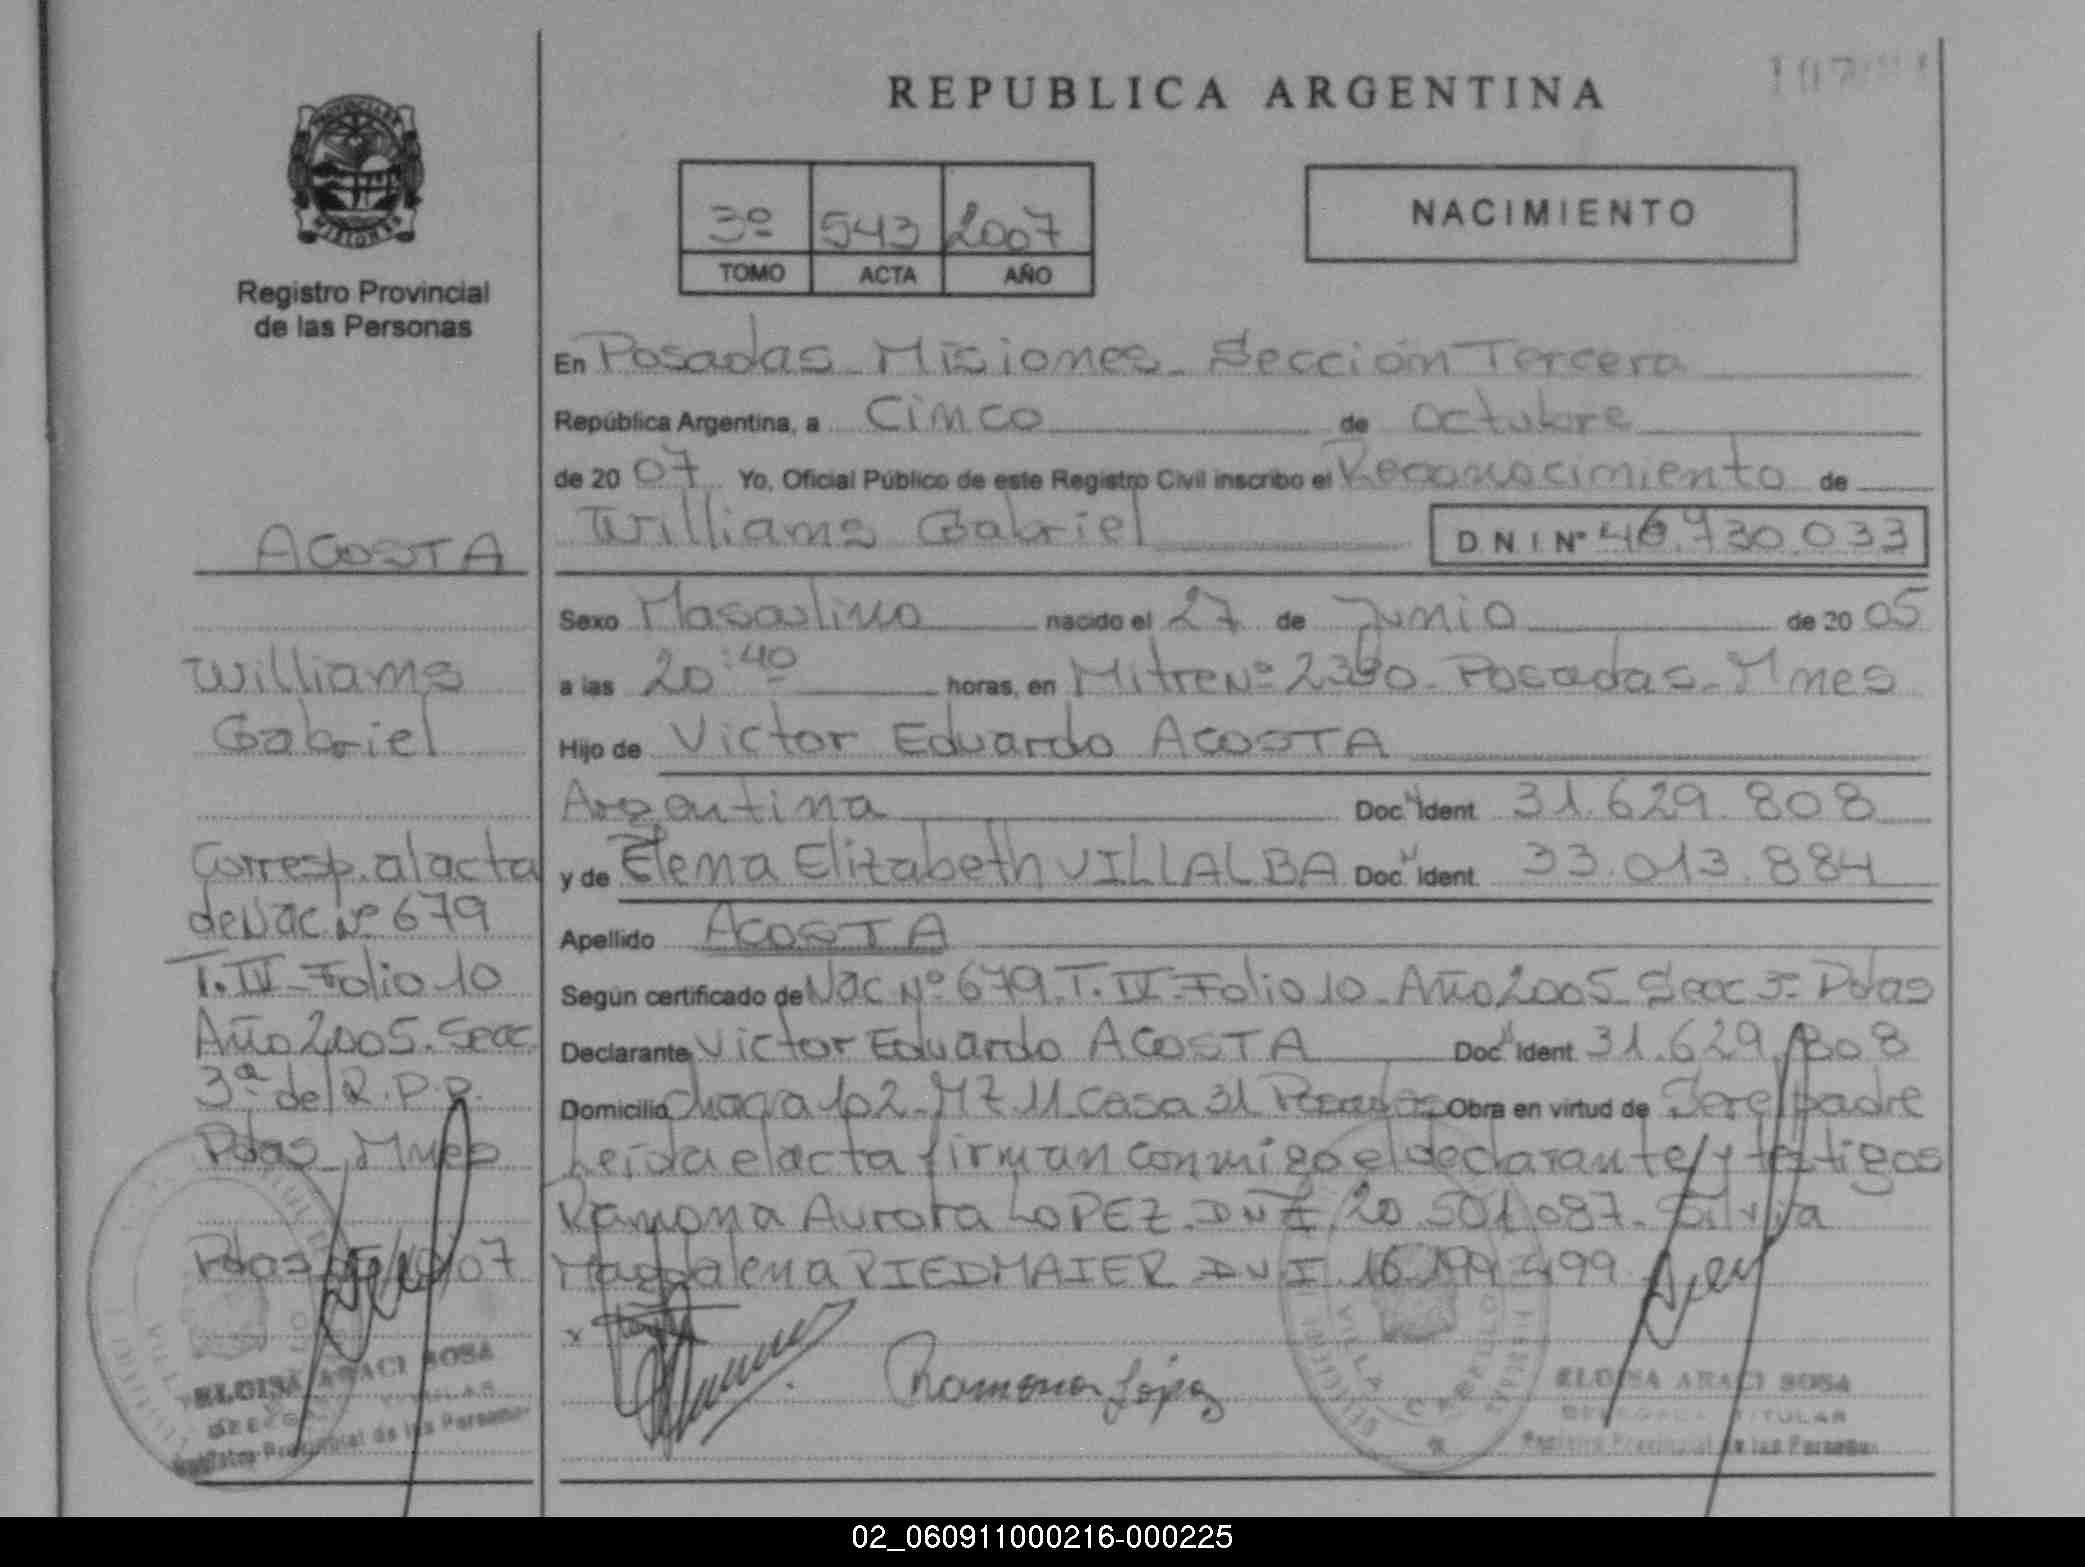 REPUBLICA ARGENTINA
PROVINCIA DE
MISIONES
Registro Provincial
de las Personas
3º 543 2007
TOMO ACTA AÑO
NACIMIENTO
En Posadas Misiones Sección Tercera
República Argentina, a Cinco de octubre
de 20 07 Yo, Oficial Público de este Registro Civil inscribo el Reconocimiento de
Williams Gabriel DNI Nº 46.730.033
Sexo Masculino nacido el 27 de Junio de 20 05
a las 20:40 horas, en Mitre Nº Posadas - Mnes
Hijo de Victor Eduardo ACOSTA
Argentina Doc. Ident. 31.629.808
y de Elena Elizabeth VILLALBA Doc. Ident. 33.013.884
Apellido ACOSTA
Según certificado de Nac Nº 679 T. IV - Folio 10 - Año 2005 - Secc 3ª Pdas
Declarante Victor Eduardo ACOSTA Doc. Ident. 31.629.808
Domicilio chacra 102 - MZ 11 casa 31 Posadas Obra en virtud de Ser el padre
Leida el acta firman conmigo el declarante y testigos
Ramona Aurora LOPEZ DNI 20.501.087 - Silvia
Magdalena RIEDMAIER DNI 16.199.
Ramona López
ELOISA ARACI SOSA
DELEGADA TITULAR
Registro Provincial de las Personas
ACOSTA
Williams
Gabriel
Corresp. al acta
de Nac. Nº 679
T. IV - Folio 10
Año 2005 - Secc
3ª del R.P.P.
Pdas - Mnes
Pdas 07
ELOISA ARACI SOSA
DELEGADA TITULAR
Registro Provincial de las Personas
02_060911000216-000225